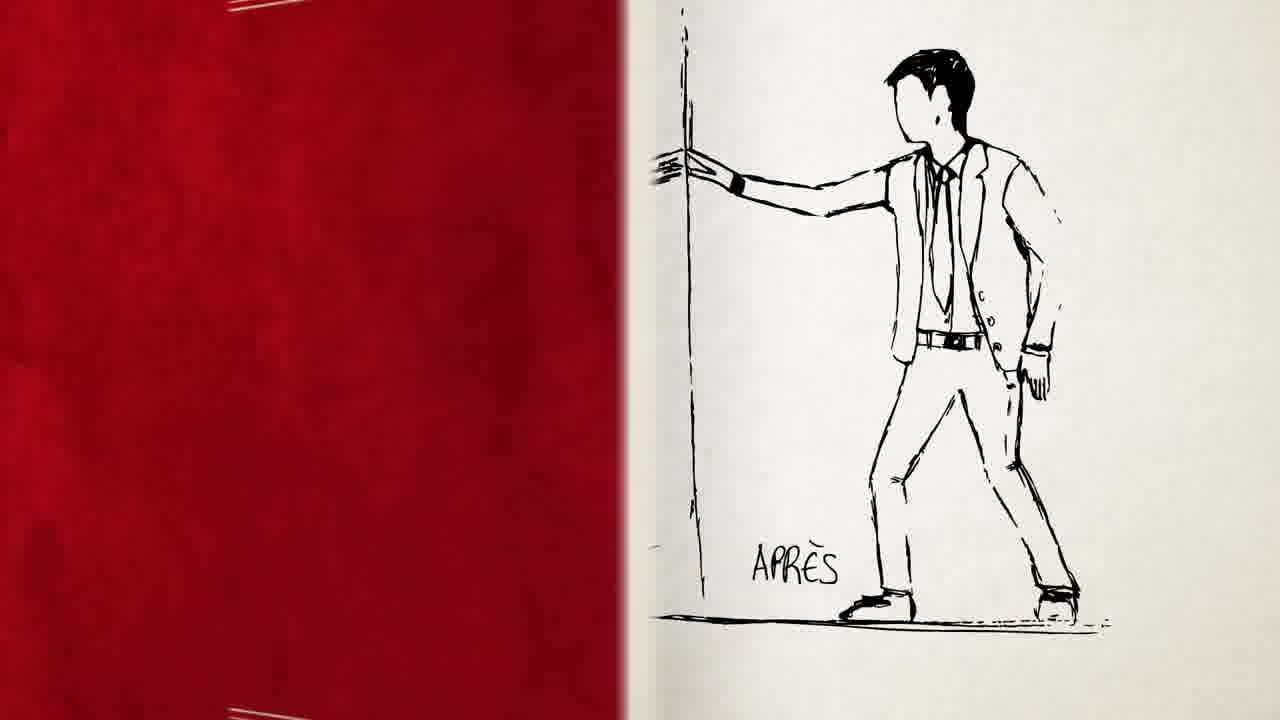 APRÈS